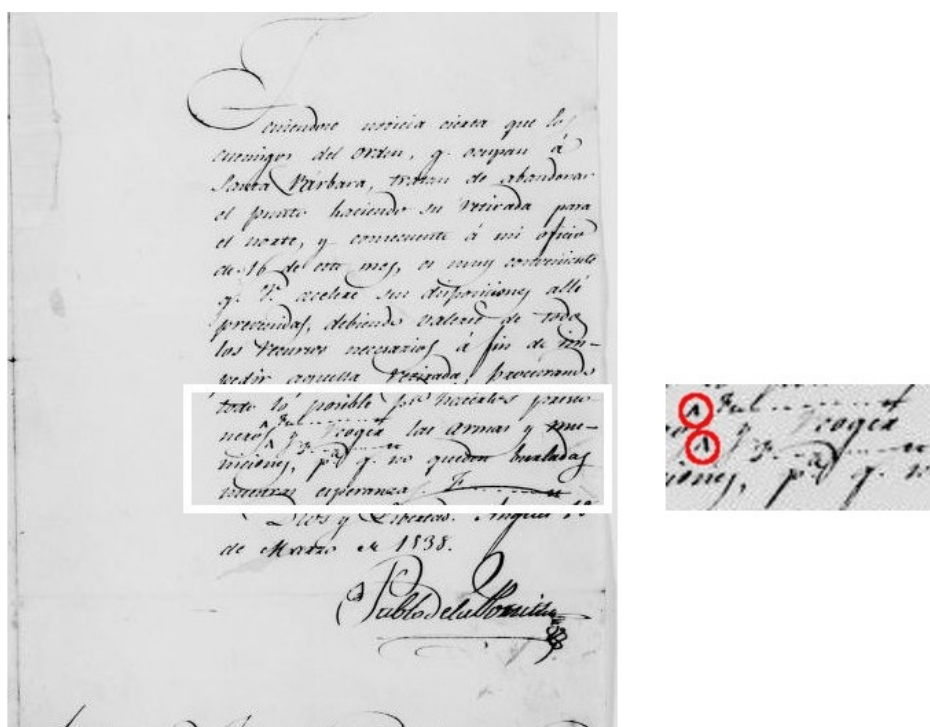 Teniendose noticia cierta que los
enemigos del orden, q. ocupan á
Santa Bárbara, tratan de abandonar
el punto haciendo su retirada para
el norte, y consecuente á mi oficio
de 16 de este mes, es muy conveniente
q. V. acelere sus disposiciones allí
prevenidas, debiendo valerse de todos
los recursos necesarios á fin de im-
pedir aquella retirada, procurando
todo lo posible pa. hacerlos prisio-
neros y recoger las armas y mu-
niciones, pa. q. no queden burladas
nuestras esperanzas.
Dios y Libertad. Angeles 18
de Marzo de 1838.
Pablo de la Portilla